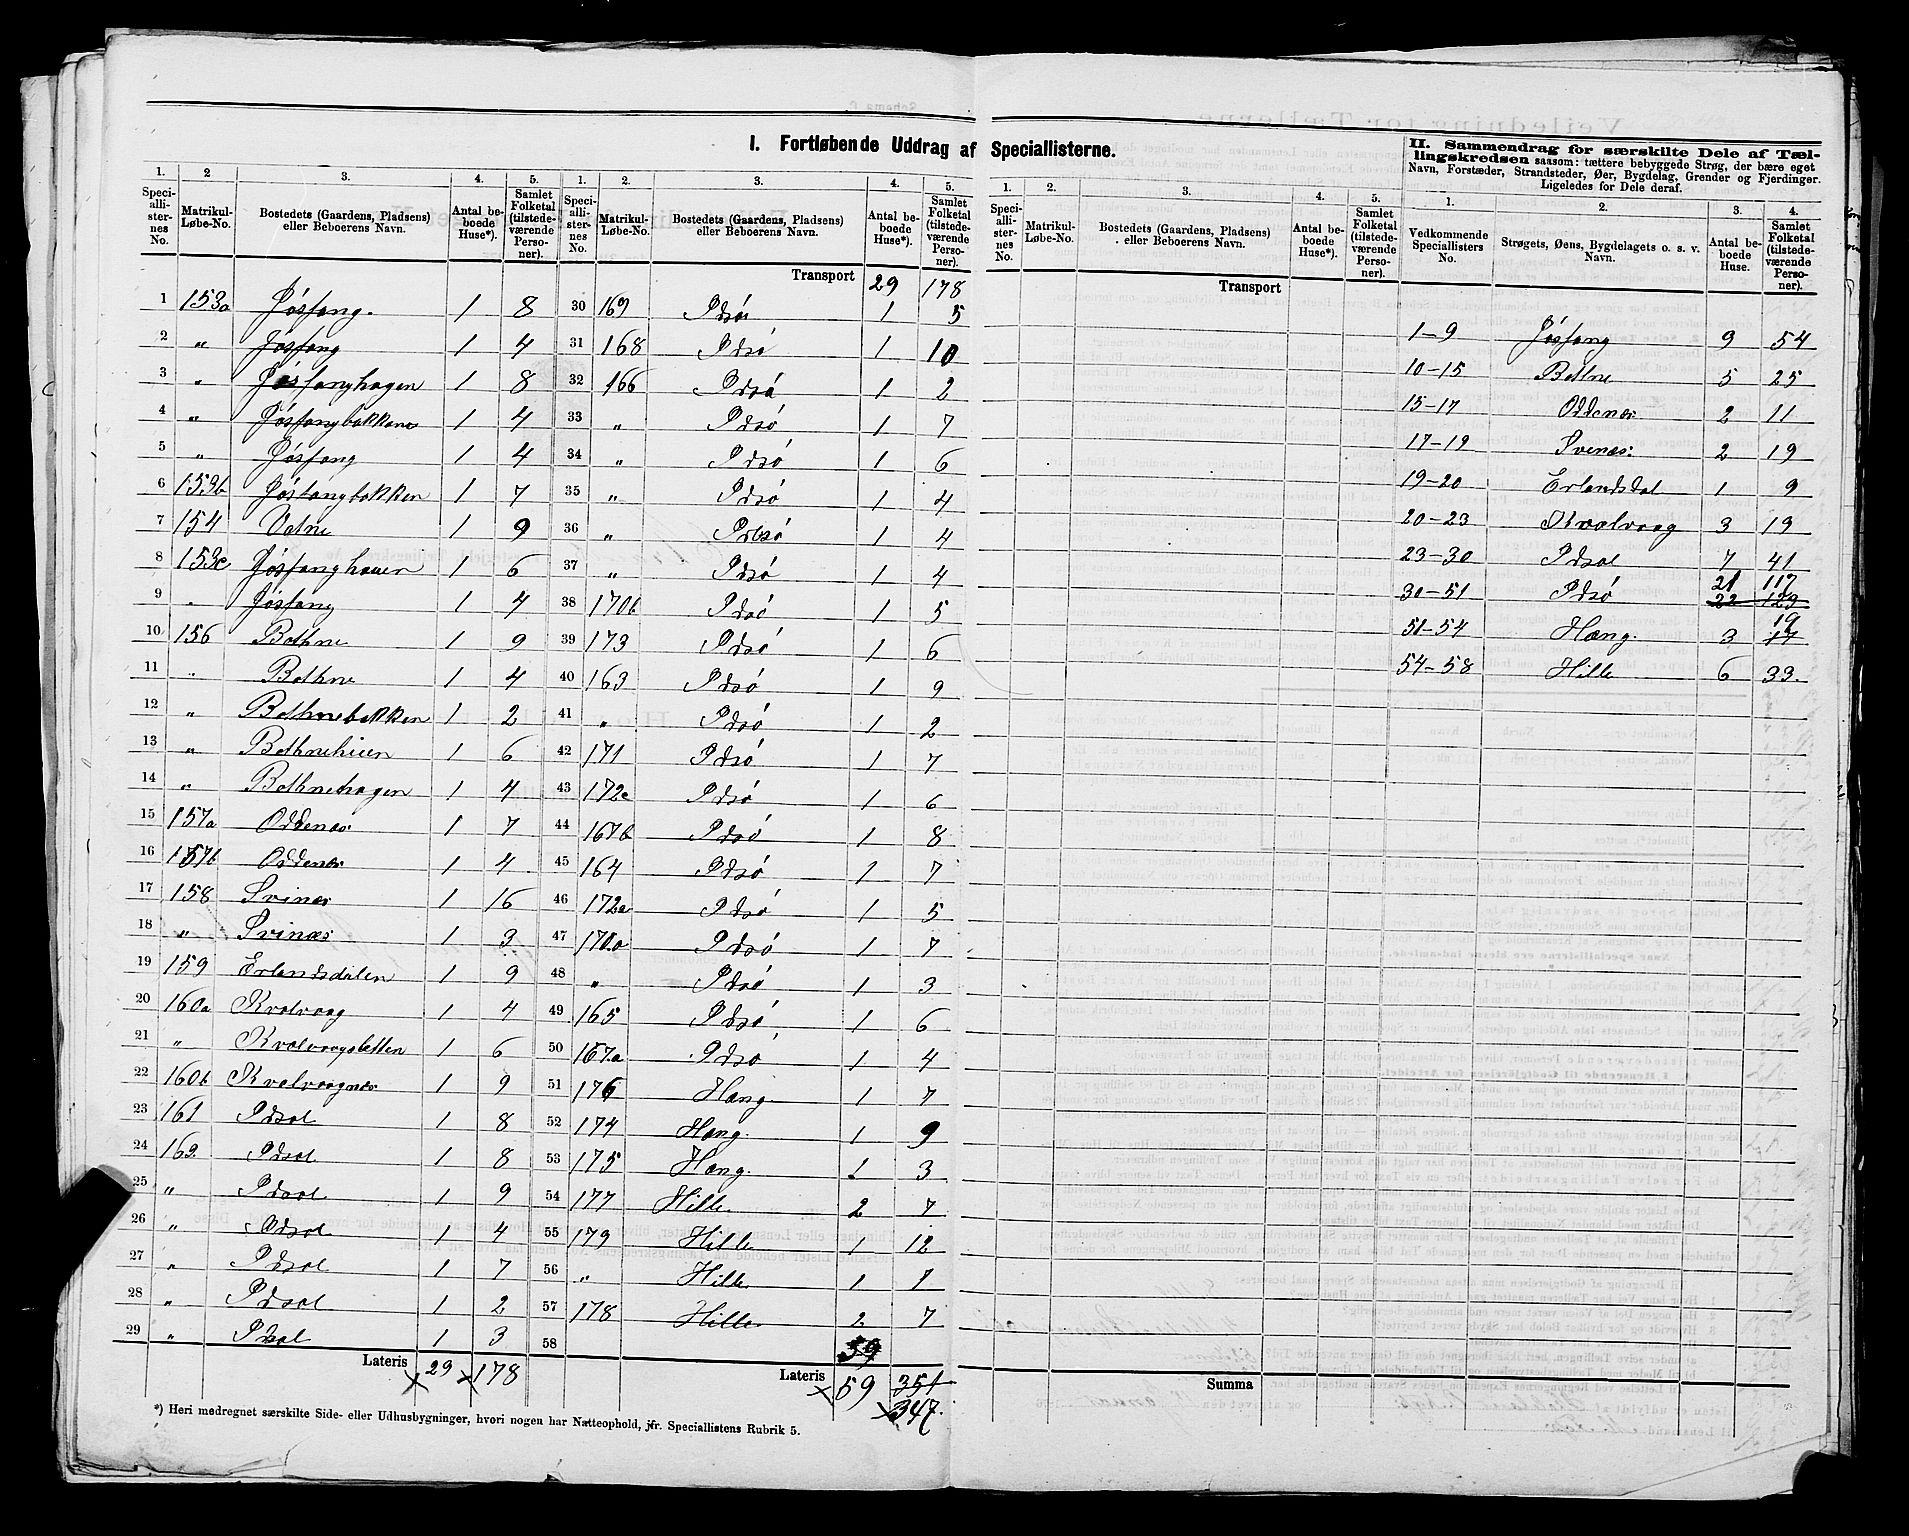 I. Fortløbende Uddrag af Speciallisterne.
II. Sammendrag for særskilte Dele af Tæl-
lingskredsen saasom: tættere bebyggede Strøg, der bære eget
Navn, Forstæder, Strandsteder, Øer, Bygdelag, Grender og Fjerdinger.
Ligeledes for Dele deraf.
1. 2 3. 4. 5. 1. 2. 3. 4. 5. 1. 2. 3. 4. 5. 1. 2. 3. 4.
Speciallisternes No. Matrikul-Løbe-No. Bostedets (Gaardens, Pladsens) eller Beboerens Navn. Antal beboede Huse*). Samlet Folketal (tilstedeværende Personer).
Speciallisternes No. Matrikul-Løbe-No. Bostedets (Gaardens, Pladsens) eller Beboerens Navn. Antal beboede Huse*). Samlet Folketal (tilstedeværende Personer).
Speciallisternes No. Matrikul-Løbe-No. Bostedets (Gaardens, Pladsens) eller Beboerens Navn. Antal beboede Huse*). Samlet Folketal (tilstedeværende Personer).
Vedkommende Speciallisters No. Strøgets, Øens, Bygdelagets o. s. v. Navn. Antal beboede Huse. Samlet Folketal (tilstedeværende Personer).
1 153a Jøsfang. 1 8
2 " Jøsfang 1 4
3 " Jøsfanghagen 1 8
4 " Jøsfangbakkene 1 4
5 " Jøsfang 1 4
6 153b Jøsfangbakken 1 7
7 154 Vatne 1 9
8 153c Jøsfanghauen 1 6
9 " Jøsfang 1 4
10 156 Bothne 1 9
11 " Bothne 1 4
12 " Bothnebakken 1 2
13 " Bothnehuen 1 6
14 " Bothnehagen 1 4
15 157a Oddenæs 1 7
16 157b Oddenæs 1 4
17 158 Svinæs 1 16
18 " Svinæs 1 3
19 159 Erlandsdalen 1 9
20 160a Kvalvaag 1 4
21 " Kvalvaagsletten 1 6
22 160b Kvalvaagnæs 1 9
23 161 Idsal 1 8
24 162 Idsal 1 8
25 " Idsal 1 9
26 " Idsal 1 4
27 " Idsal 1 7
28 " Idsal 1 2
29 " Idsal 1 3
Lateris 29 178
Transport 29 178
30 169 Idsø 1 5
31 168 Idsø 1 10
32 166 Idsø 1 2
33 " Idsø 1 7
34 " Idsø 1 6
35 " Idsø 1 4
36 " Idsø 1 4
37 " Idsø 1 4
38 170b Idsø 1 5
39 173 Idsø 1 6
40 163 Idsø 1 9
41 " Idsø 1 2
42 171 Idsø 1 7
43 172c Idsø 1 6
44 167b Idsø 1 8
45 164 Idsø 1 7
46 172a Idsø 1 5
47 170a Idsø 1 7
48 " Idsø 1 3
49 165 Idsø 1 6
50 167a Idsø 1 4
51 176 Hæng 1 7
52 174 Hæng. 1 9
53 175 Hæng. 1 3
54 177 Hille. 2 7
55 179 Hille 1 12
56 " Hille 1 7
57 178 Hille 2 7
58 59
Lateris 59 351
347.
Transport
Summa
1-9 Jøsfang 9 54
10-15 Bothne 5 25
15-17 Oddenæs 2 11
17-19 Svenæs: 2 19
19-20 Erlandsdal 1 9
20-23 Kvalvaag 3 19
23-30 Idsal 7 41
21 117
30-51 Idsø 22 123
19
51-54 Hæng. 3 17
54-58 Hille 6 33.
*) Heri medregnet særskilte Side- eller Udhusbygninger, hvori nogen har Natteophold, jfr. Speciallistens Rubrik 5.